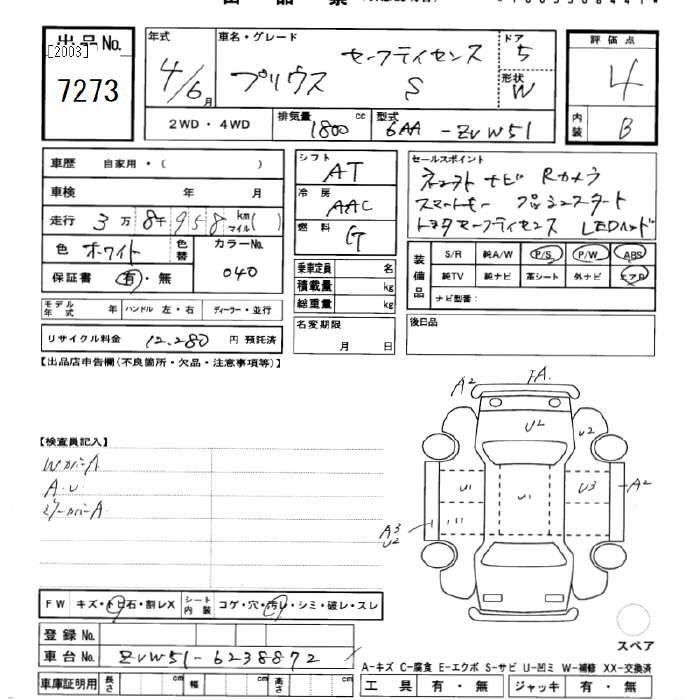 出品No.
[2003]
7273
年式
4/6月
車名・グレード
セーフティセンス
プリウス S
ドア
5
形状
W
評価点
4
内装
B
2WD・4WD
排気量
1800 cc
型式
6AA-ZVW51
車歴 自家用・( )
車検 年 月
走行 3万8千958 km マイル( )
色 ホワイト
色替
カラーNo.
040
保証書 有・無
シフト
AT
冷房
AAC
燃料
G
セールスポイント
ナビ Rカメラ
スマートキー プッシュスタート
トヨタセーフティセンス LEDヘッド
乗車定員 名
積載量 kg
総重量 kg
装備品
S/R 純A/W P/S P/W ABS
純TV 純ナビ 革シート 外ナビ エアB
ナビ型番:
モデル年式 年 ハンドル 左・右 ディーラー・並行
リサイクル料金 12,280 円 預託済
名変期限
月 日
後日品
【出品店申告欄(不良箇所・欠品・注意事項等)】
A2 FA.
U2 U2
【検査員記入】
WカバーA
A.U
ミラーカバーA
U1 U1 U3 A2
A3
U2
FW キズ・トビ石・割レX
シート内装 コゲ・穴・汚レ・シミ・破レ・スレ
登録No.
車台No. ZVW51-6238872
車庫証明用 長さ cm 幅 cm 高さ cm
スペア
A-キズ C-腐食 E-エクボ S-サビ U-凹ミ W-補修 XX-交換済
工具 有・無 ジャッキ 有・無